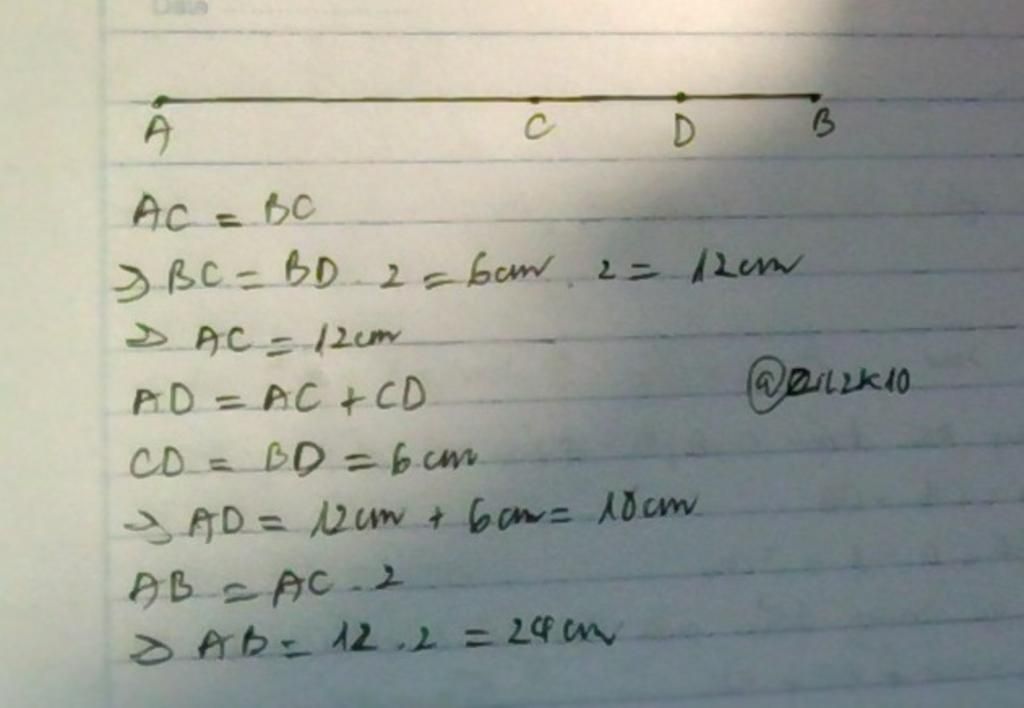 Date
A C D B
AC = BC
=> BC = BD . 2 = 6cm . 2 = 12cm
=> AC = 12cm
AD = AC + CD
CD = BD = 6cm
=> AD = 12cm + 6cm = 18cm
AB = AC . 2
=> AB = 12 . 2 = 24cm